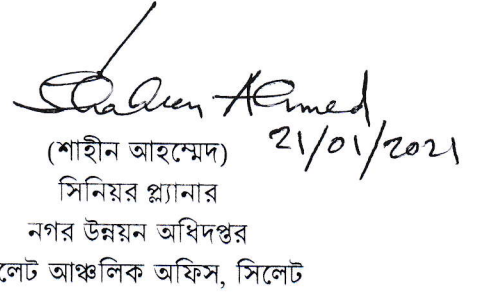 Shaheen Ahmed
21/01/2021
(শাহীন আহম্মেদ)
সিনিয়র প্ল্যানার
নগর উন্নয়ন অধিদপ্তর
লেট আঞ্চলিক অফিস, সিলেট